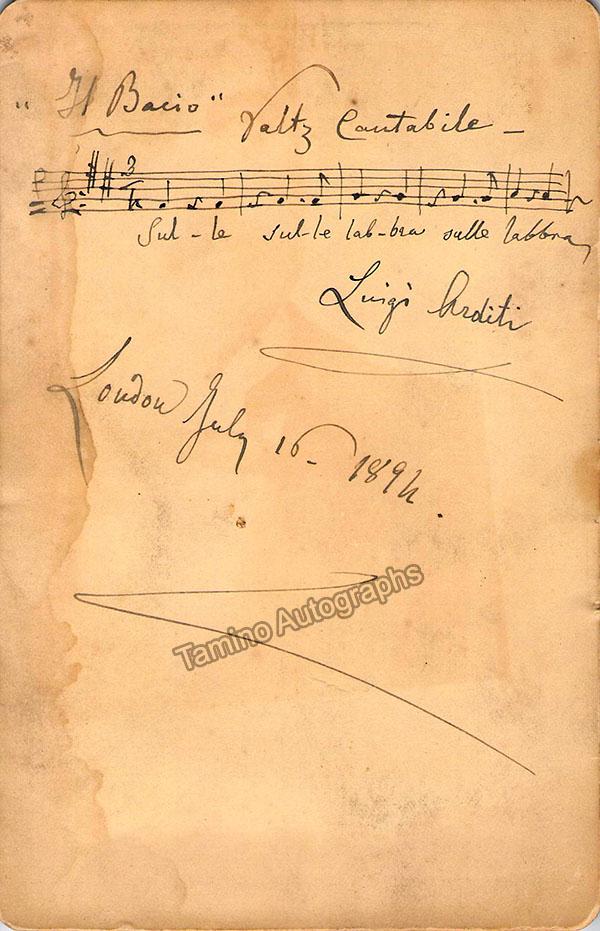 "Il Bacio" Valtz Cantabile -
3
4
Sul-le sul-le lab-bra sulle labbra
Luigi Arditi
London July 16 - 1894.
Tamino Autographs